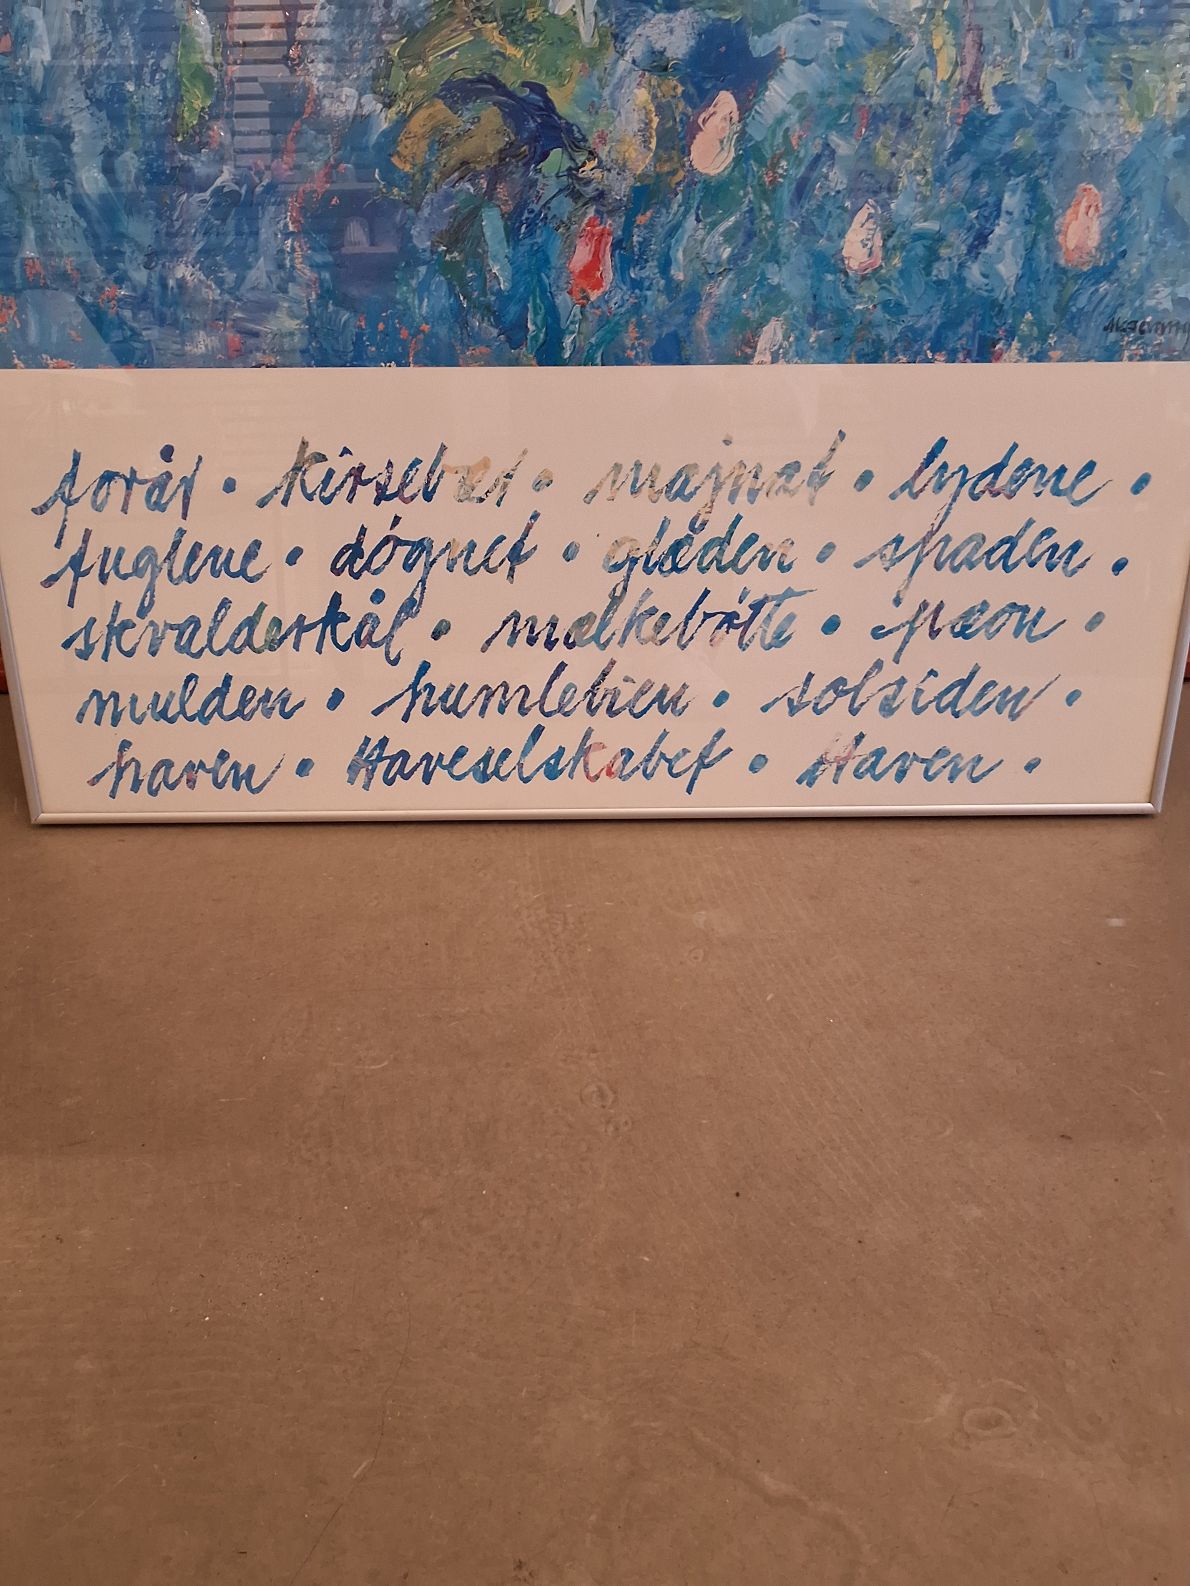 forår • kirsebær • majnat • lydene •
fuglene • døgnet • glæden • spaden •
skvalderkål • mælkebøtte • pæon •
mulden • humlebien • solsiden •
haven • Haveselskabet • Haven •